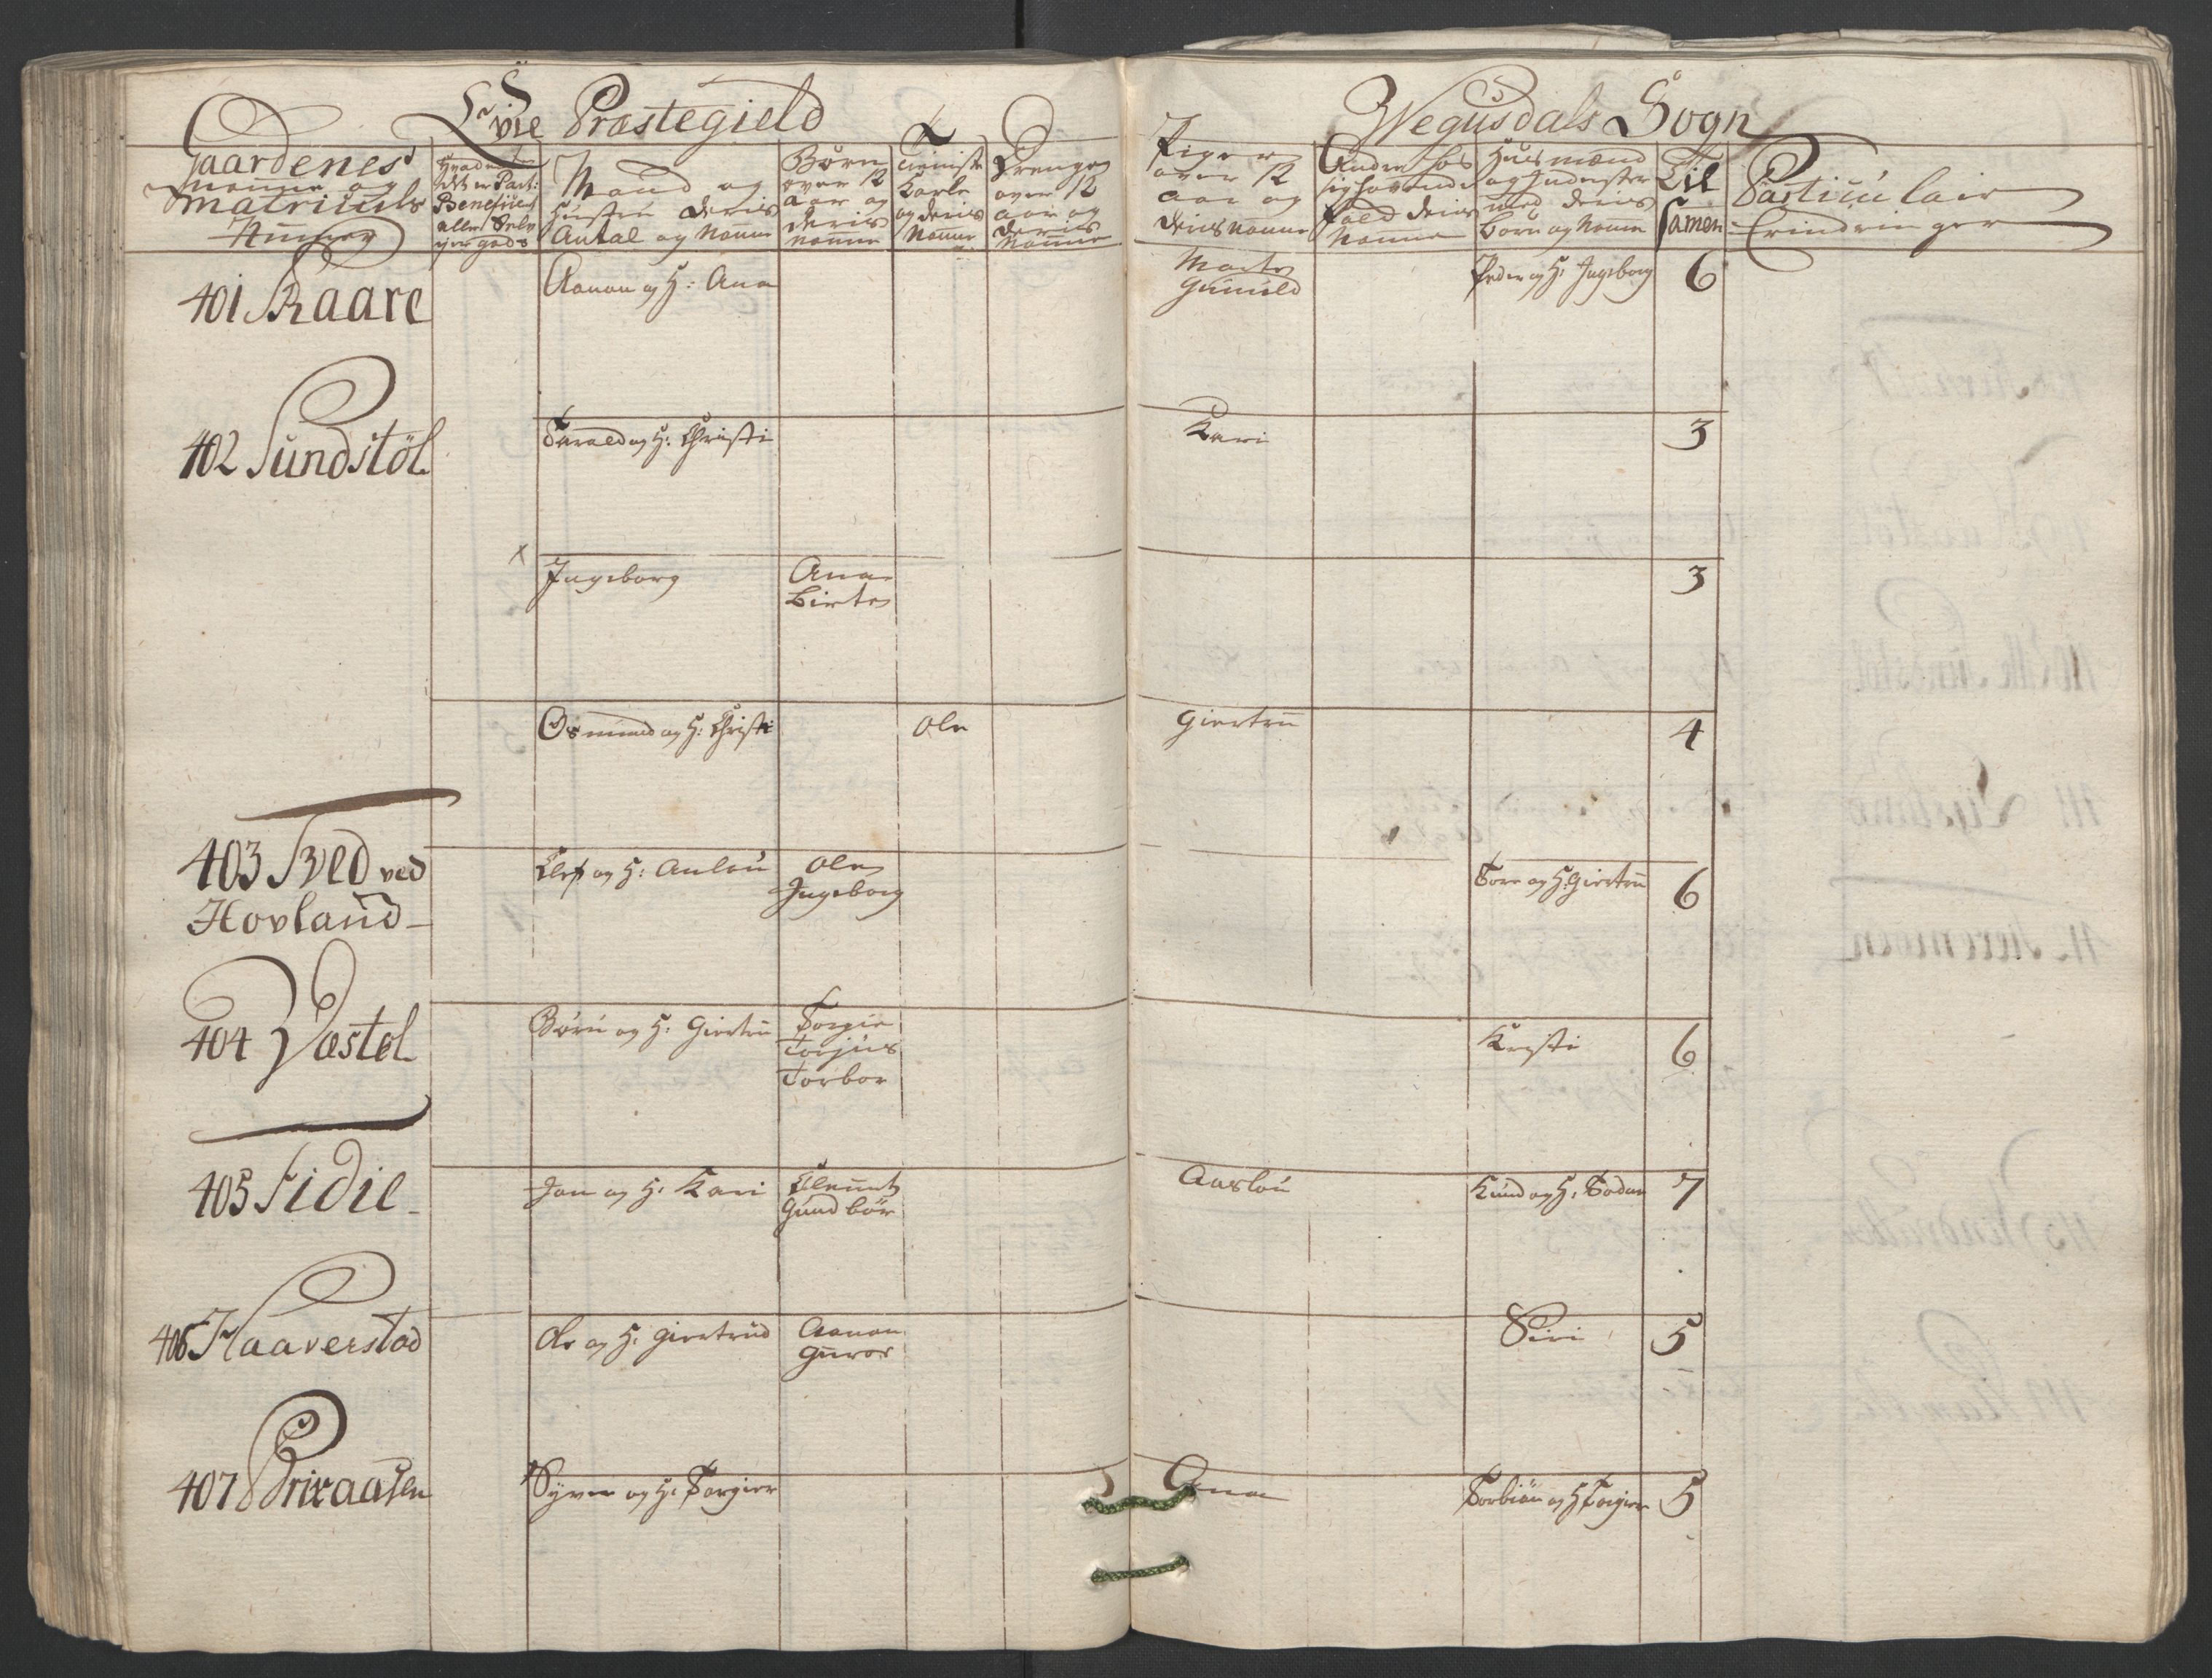 Evie Præstegield
Wegusdals Sogn
Gaardenes
Nafne og
Matriculs
Numrer
Hvad
det er Part:
Beneficeret
eller Selv
eyer gods
Mand og
Hustru Deris
Antal og Nafne
Børn
over 12
Aar og
Deris
Nafne
Tieniste
Karle
og deris
Nafne
Drenge
over 12
Aar og
Deris
Nafne
Piger
over 12
Aar og
Deris Nafne
Andre hos
sig havende
Folk deris
Nafne
Huusmænd
og Inderster
med deris
Børn og Nafne
Til
samen
Particulair
Erindringer
401 Raare
Aanon og H: Ana
Marte
Gunild
Peder og H: Ingeborg
6
402 Sundstøl
Tarald og H: Christi
Kari
3
x
Ingeborg
Ana
Birte
3
Osmund og H: Christi
Ole
Giertru
4
403 Tved ved
Hovland
Elef og H: Anlou
Ole
Ingeborg
Tore og H: Giertru
6
404 Væstøl
Børu og H: Giertru
Torgie
Torjus
Torbor
Kristi
6
405 Fidie
Jon og H: Kari
Clemet
Gundbör
Aaslou
Knud og H: Todne
7
406 Haaverstad
Ole og H: Giertrud
Aanon
Guroe
Siri
5
407 Brixaasen
Syver og H: Torgier
Ana
Torbiön og H Torgier
5